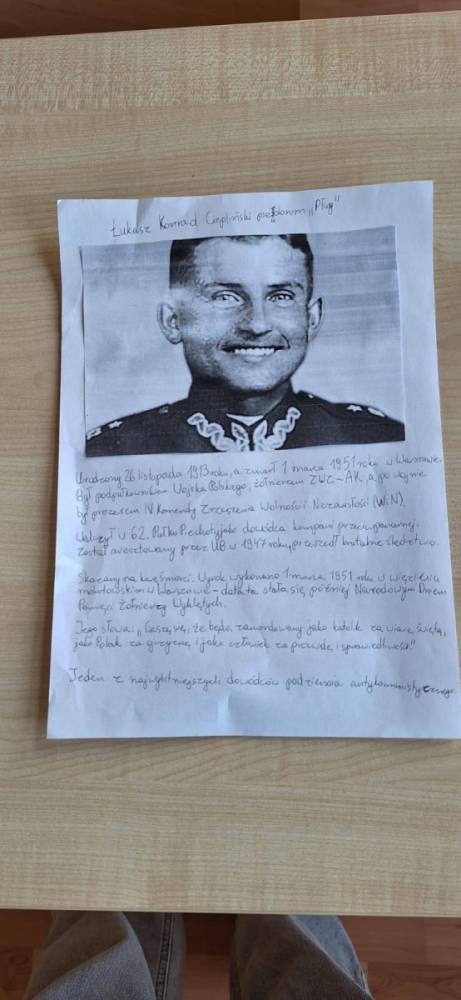 Łukasz Konrad Ciepliński pseudonim „Pług"
Urodzony 26 listopada 1913 roku, a zmarł 1 marca 1951 roku w Warszawie.
Był podpułkownikiem Wojska Polskiego, żołnierzem ZWZ-AK, a po wojnie
był prezesem IV Komendy Zrzeszenia Wolność i Niezawisłość (WiN).
Walczył w 62. Pułku Piechoty jako dowódca kompanii przeciwpancernej.
Został aresztowany przez UB w 1947 roku, przeszedł brutalne śledztwo.
Skazany na karę śmierci. Wyrok wykonano 1 marca 1951 roku w więzieniu
mokotowskim w Warszawie - data ta stała się później Narodowym Dniem
Pamięci Żołnierzy Wyklętych.
Jego słowa: „Cieszę się, że będę zamordowany jako katolik za wiarę świętą,
jako Polak za ojczyznę i jako człowiek za prawdę i sprawiedliwość!"
Jeden z najwybitniejszych dowódców podziemia antykomunistycznego.